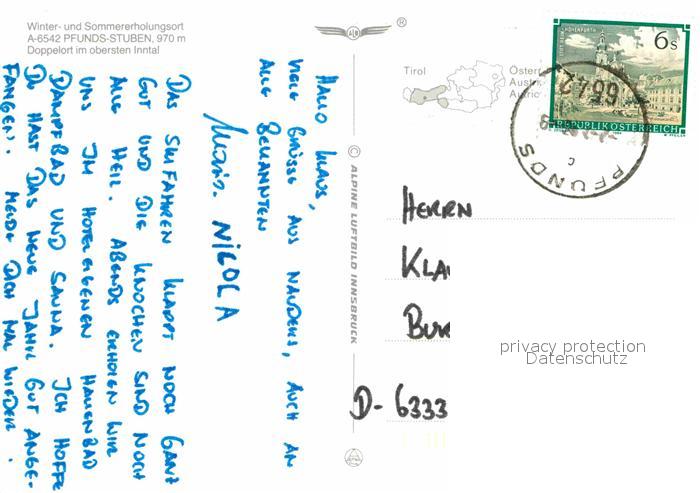 Winter- und Sommererholungsort
A-6542 PFUNDS-STUBEN, 970 m
Doppelort im obersten Inntal
HALLO KLAUS,
VIELE GRÜSSE AUS NAUDERS, AUCH AN
ALLE BEKANNTEN
NICOLA
DAS SKIFAHREN KLAPPT NOCH GANZ
GUT UND DIE KNOCHEN SIND NOCH
ALLE HEIL. ABENDS ERHOLEN WIR
UNS IM HOTELEIGENEN HALLENBAD
DAMPFBAD UND SAUNA. ICH HOFFE
DU HAST DAS NEUE JAHR GUT ANGE-
FANGEN. MELDE DICH MAL WIEDER.
© ALPINE LUFTBILD INNSBRUCK
®
Tirol
Österr
Austri
Autric
6 S
REPUBLIK ÖSTERREICH
6542
PFUNDS
c
HERRN
KLA
BUR
D- 6333
privacy protection
Datenschutz